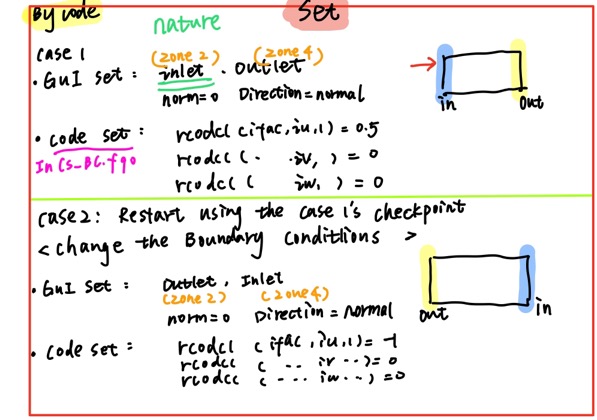 By code
nature
Set
case 1
(zone 2) (zone 4)
• GuI set : inlet . outlet
norm=0 Direction=normal
in out
• code set : rcodcl (ifac,iu,1) = 0.5
In CS_BC.f90 rcodcl ( . .iv, ) = 0
rcodcl ( iw, ) = 0
case 2: Restart using the case 1's checkpoint
< change the Boundary Conditlions >
• GuI set : Outlet , Inlet
(zone 2) (zone 4)
out in
norm=0 Direction = normal
• code set : rcodcl (ifac,iu,1) = -1
rcodcl ( .. iv ..) = 0
rcodcl ( - ... iw ..) = 0